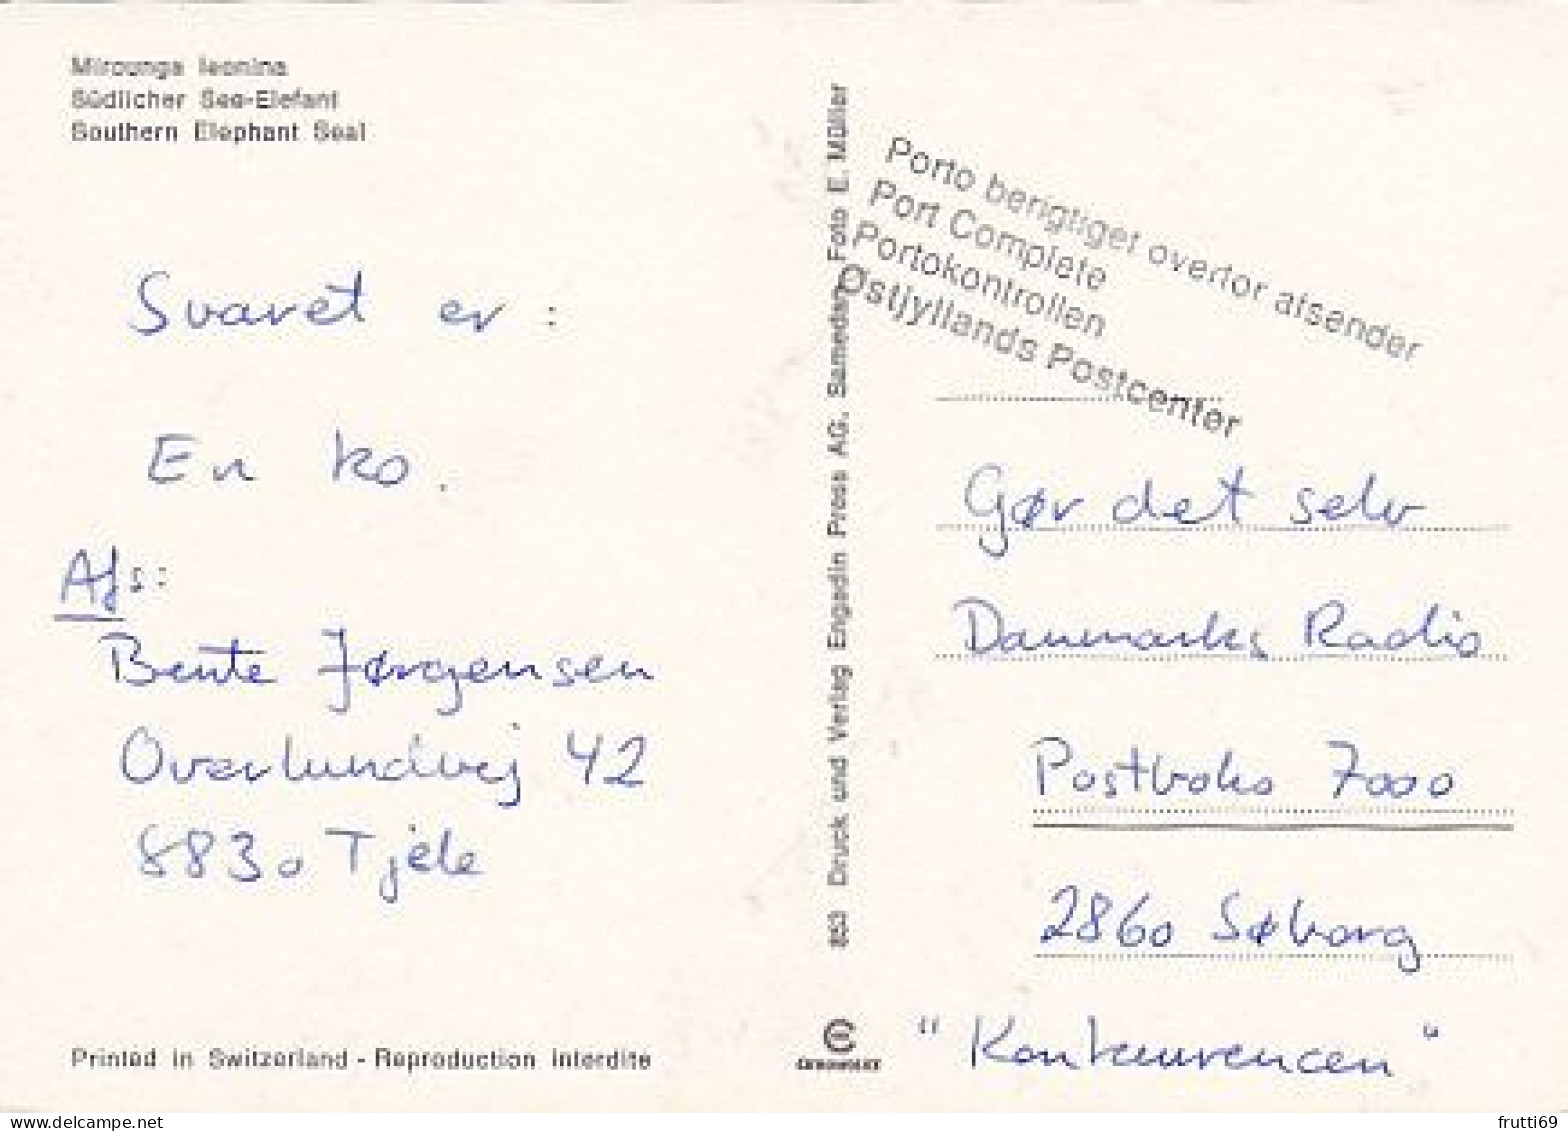 Mirounga leonina
Südlicher See-Elefant
Southern Elephant Seal
Svaret er :
En ko.
Afs:
Bente Jørgensen
Overlundvej 42
8830 Tjele
Printed in Switzerland - Reproduction interdite
853 Druck und Verlag Engadin Press AG, Samedan, Foto E. Müller
Porto berigtiget overfor afsender
Port Complete
Portokontrollen
Østjyllands Postcenter
Gør det selv
Danmarks Radio
Postboks 7000
2860 Søborg
"Konkurrencen"
www.delcampe.net
frutti69